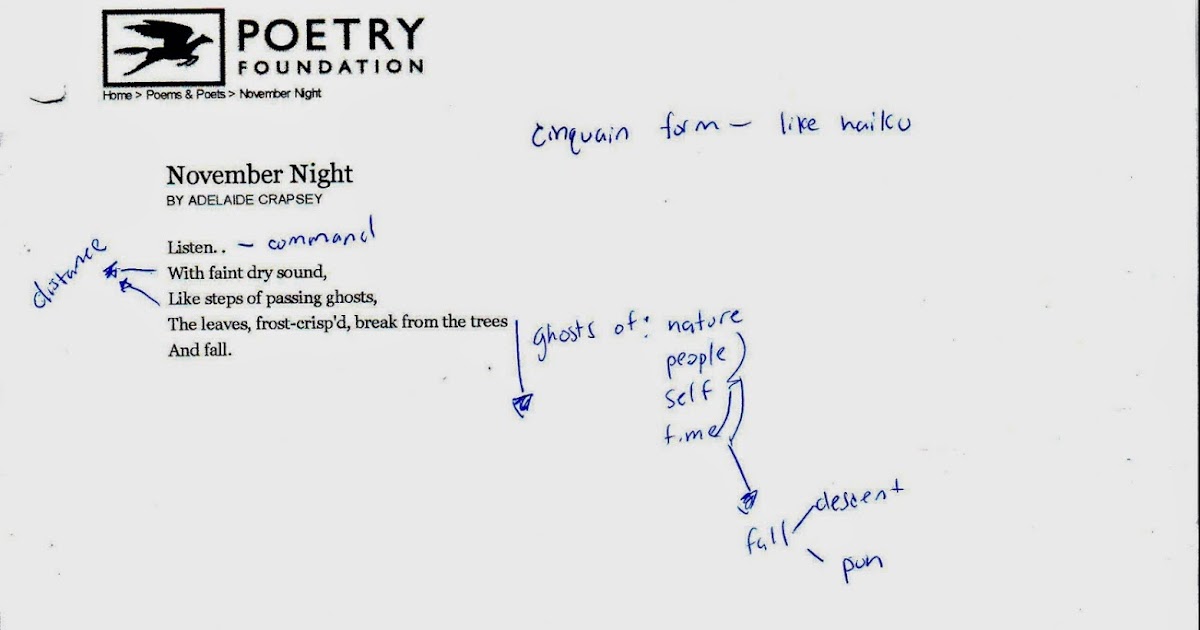 POETRY
FOUNDATION
Home > Poems & Poets > November Night
cinquain form – like haiku
November Night
BY ADELAIDE CRAPSEY
Listen. . – command
distance
With faint dry sound,
Like steps of passing ghosts,
The leaves, frost-crisp'd, break from the trees
And fall.
ghosts of: nature
people
self
time
fall
descent
pun